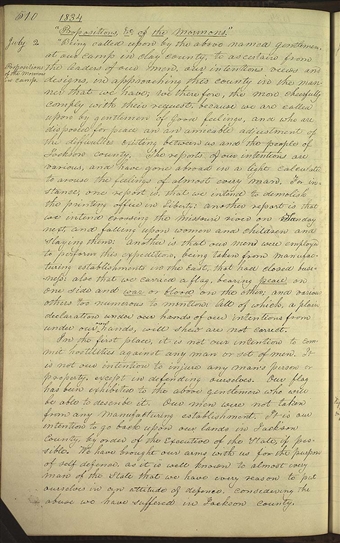 510 1834
"Propositions, &c of the Mormons."
July 2 "Being called upon by the above named gentlemen
Propositions at our camp in Clay County, to ascertain from
of the Mormons the leaders of our men, our intentions, views and
in camp. designs, in approaching this county in the man-
ner that we have; we therefore, the more cheerfully
comply with their request, because we are called
upon by gentlemen of good feelings, and who are
disposed for peace and an amicable adjustment of
the difficulties existing between us and the people of
Jackson county. The reports of our intentions are
various, and have gone abroad in a light calculated
to arouse the feelings of almost every man. For in-
stance, one report is that we intend to demolish
the printing office in Liberty; another report is that
we intend crossing the Missouri river on Sunday
next, and falling upon women and children and
slaying them; another is that our men were employed
to perform this expedition, being taken from manufac-
turing establishments in the East, that had closed busi-
ness; also that we carried a flag, bearing peace on
one side and war or blood on the other; and various
others too numerous to mention. All of which, a plain
declaration under our hands of our intentions, from
under our hands, will show are not correct.
In the first place, it is not our intention to com-
mit hostilities against any man or set of men. It
is not our intention to injure any man's person or
property, except in defending ourselves. Our flag
has been exhibited to the above gentlemen who will
be able to describe it. Our men were not taken
from any manufacturing establishment. It is our
intention to go back upon our lands in Jackson
County, by order of the Executive of the State, if pos-
sible. We have brought our arms with us for the purpose
of self defence, as it is well known to almost every
man of the State that we have every reason to put
ourselves in an attitude of defence, considering the
abuse we have suffered in Jackson County.